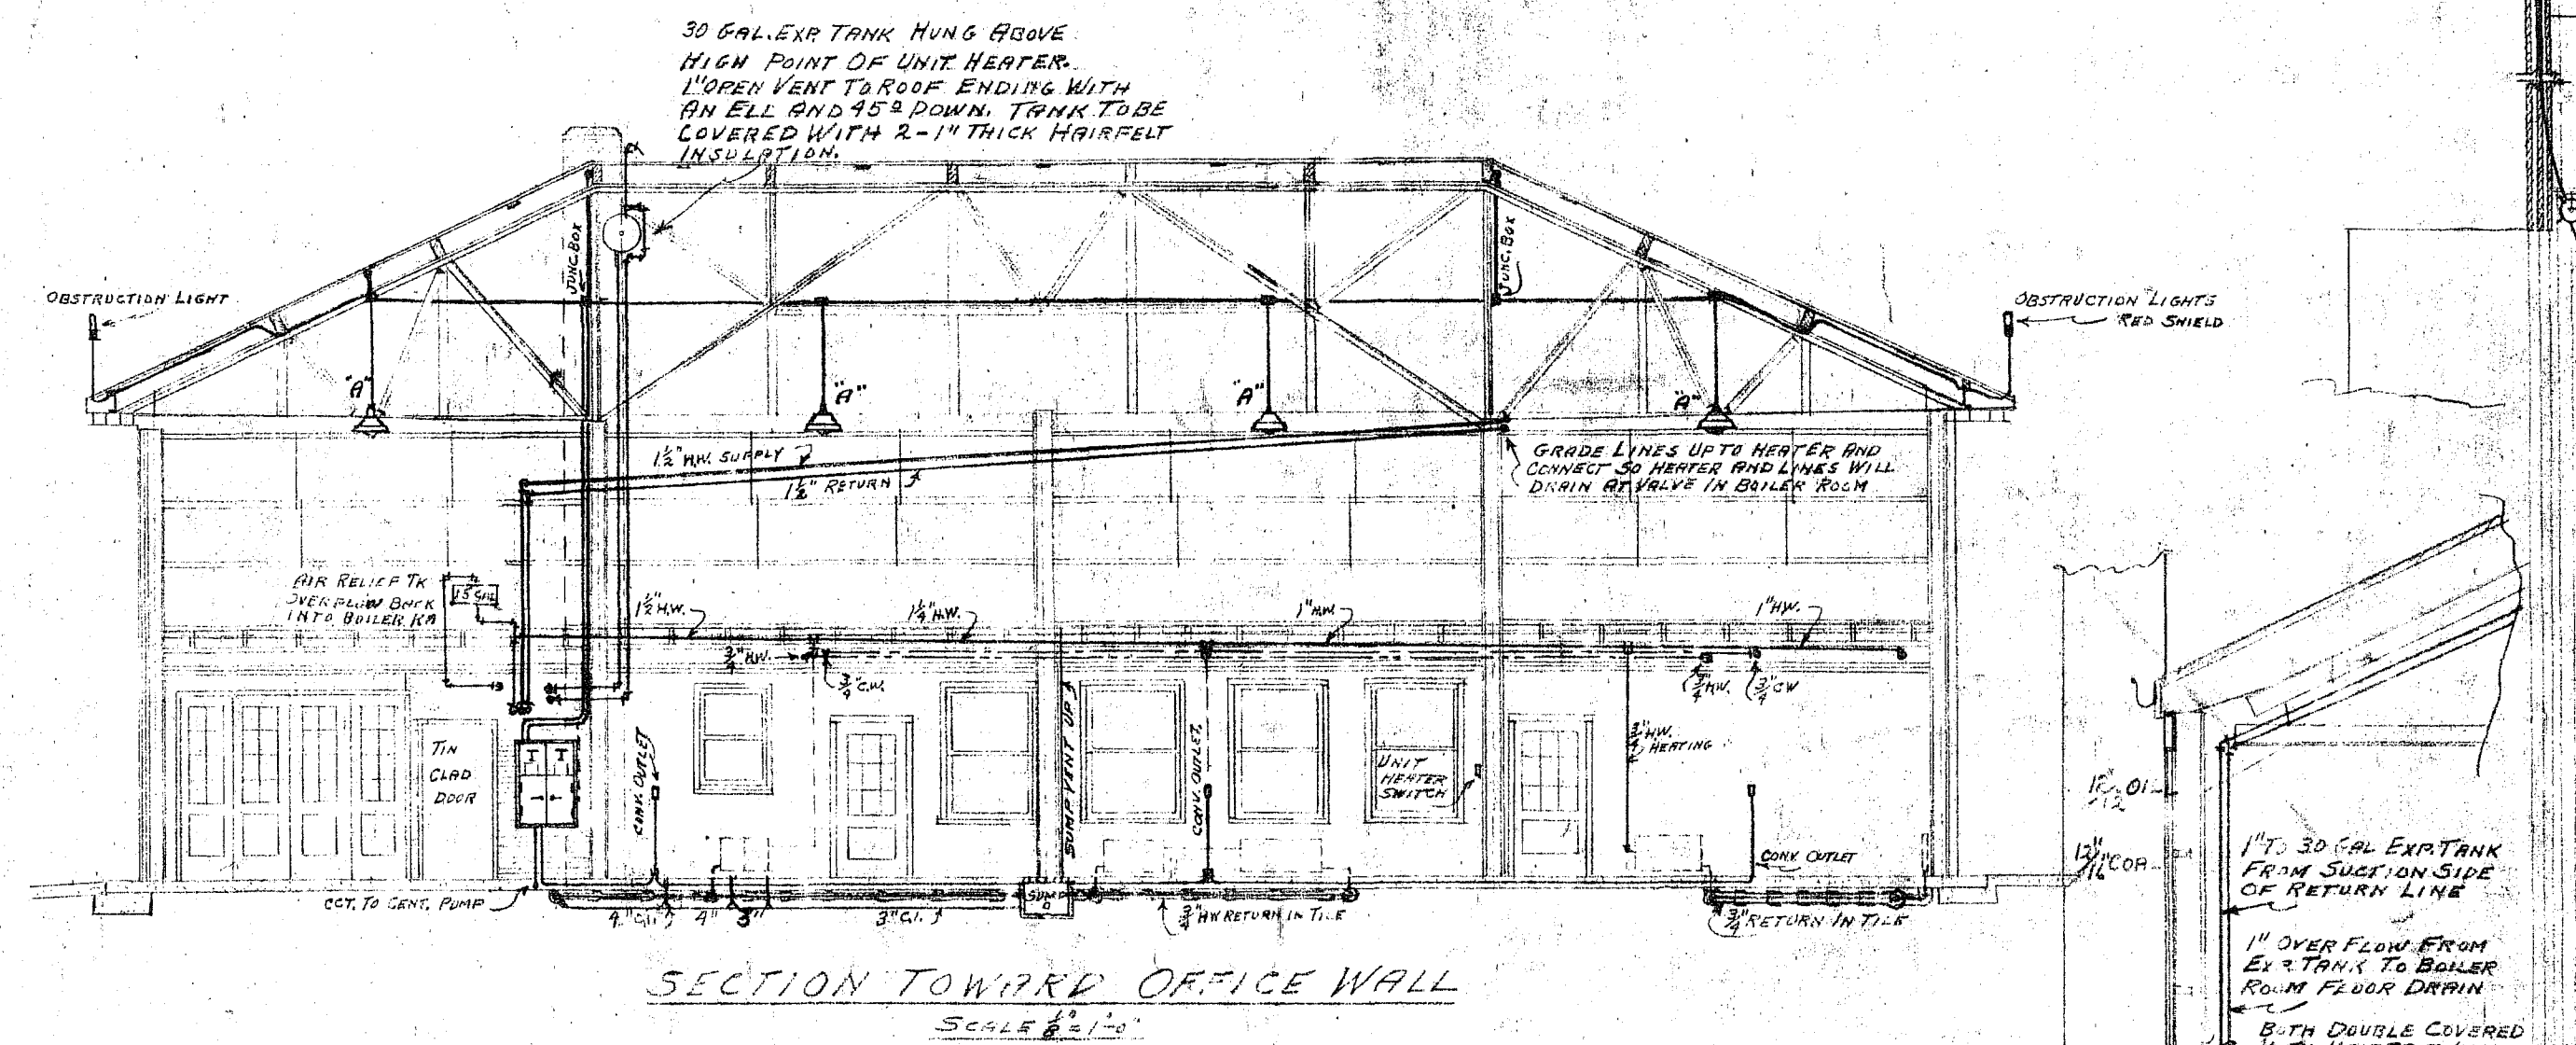 30 GAL. EXP. TANK HUNG ABOVE
HIGH POINT OF UNIT HEATER.
1" OPEN VENT TO ROOF ENDING WITH
AN ELL AND 45º DOWN. TANK TO BE
COVERED WITH 2-1" THICK HAIRFELT
INSULATION.
JUNC. BOX
JUNC. BOX
OBSTRUCTION LIGHT
OBSTRUCTION LIGHTS
RED SHIELD
"A"
"A"
"A"
"A"
1½" H.W. SUPPLY
1½" RETURN
GRADE LINES UP TO HEATER AND
CONNECT SO HEATER AND LINES WILL
DRAIN AT VALVE IN BOILER ROOM
AIR RELIEF TK
OVERFLOW BACK
INTO BOILER RM
15 GAL
1½" H.W.
1¼" H.W.
1" H.W.
1" H.W.
¾" H.W.
¾" C.W.
¾" H.W.
¾" CW
TIN
CLAD
DOOR
CONV. OUTLET
SUMP VENT UP
CONV. OUTLET
UNIT
HEATER
SWITCH
¾" H.W.
HEATING
CONV. OUTLET
CCT. TO CENT. PUMP
4" C.I.
4"
3"
3" C.I.
SUMP
¾" HW RETURN IN TILE
¾" RETURN IN TILE
SECTION TOWARD OFFICE WALL
SCALE ⅛" = 1'-0"
12
1" TO 30 GAL EXP. TANK
FROM SUCTION SIDE
OF RETURN LINE
1" OVER FLOW FROM
EXP TANK TO BOILER
ROOM FLOOR DRAIN
BOTH DOUBLE COVERED